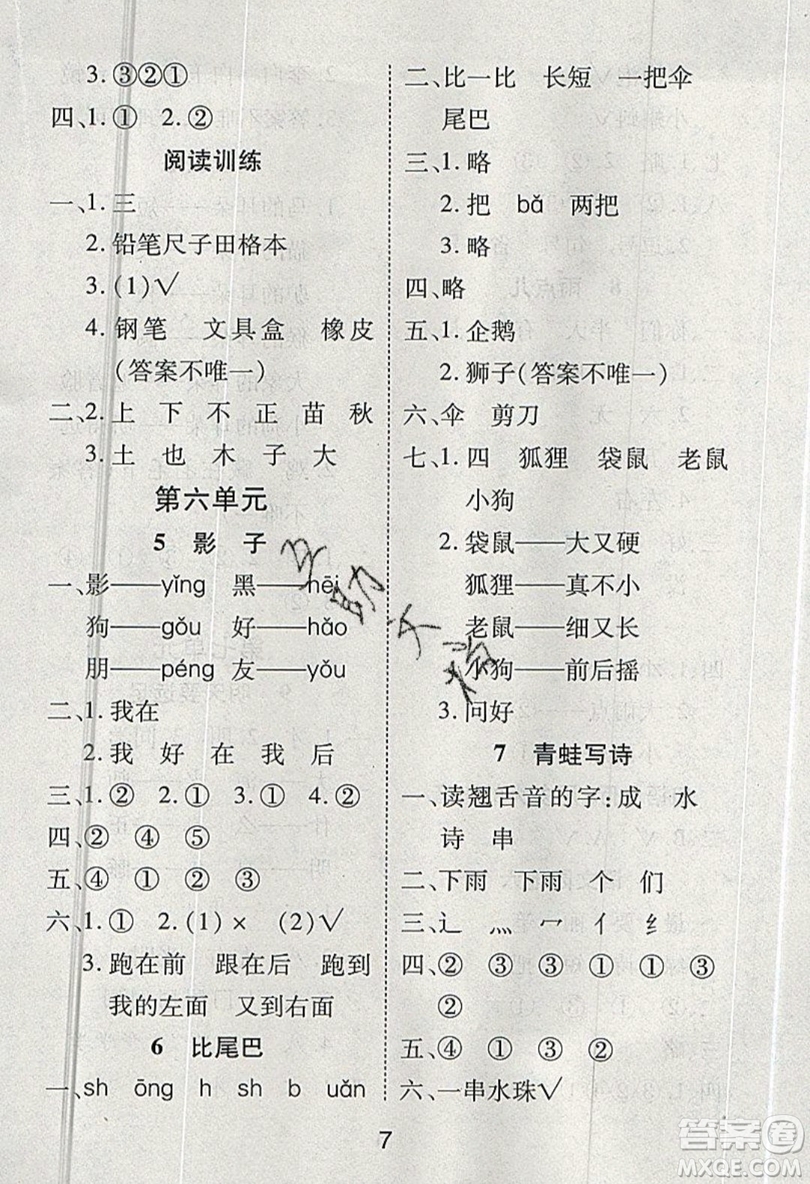 3. ③②①
四、1. ① 2. ②
阅读训练
一、1. 三
2. 铅笔尺子田格本
3. (1)√
4. 钢笔 文具盒 橡皮
(答案不唯一)
二、2. 上 下 不 正 苗 秋
3. 土 也 木 子 大
第六单元
5 影 子
一、影——yǐng 黑——hēi
狗——gǒu 好——hǎo
朋——péng 友——yǒu
二、1. 我在
2. 我 好 在 我 后
三、1. ② 2. ① 3. ① 4. ②
四、② ④ ⑤
五、④ ① ② ③
六、1. ① 2. (1) × (2)√
3. 跑在前 跟在后 跑到
我的左面 又到右面
6 比尾巴
一、sh ōng h sh b uǎn
二、比一比 长短 一把伞
尾巴
三、1. 略
2. 把 bǎ 两把
3. 略
四、略
五、1. 企鹅
2. 狮子(答案不唯一)
六、伞 剪刀
七、1. 四 狐狸 袋鼠 老鼠
小狗
2. 袋鼠——大又硬
狐狸——真不小
老鼠——细又长
小狗——前后摇
3. 问好
7 青蛙写诗
一、读翘舌音的字:成 水
诗 串
二、下雨 下雨 个 们
三、辶 灬 冖 亻 纟
四、② ③ ③ ① ① ③
②
五、④ ① ② ③
六、一串水珠√
7
答案圈
MXQE.COM